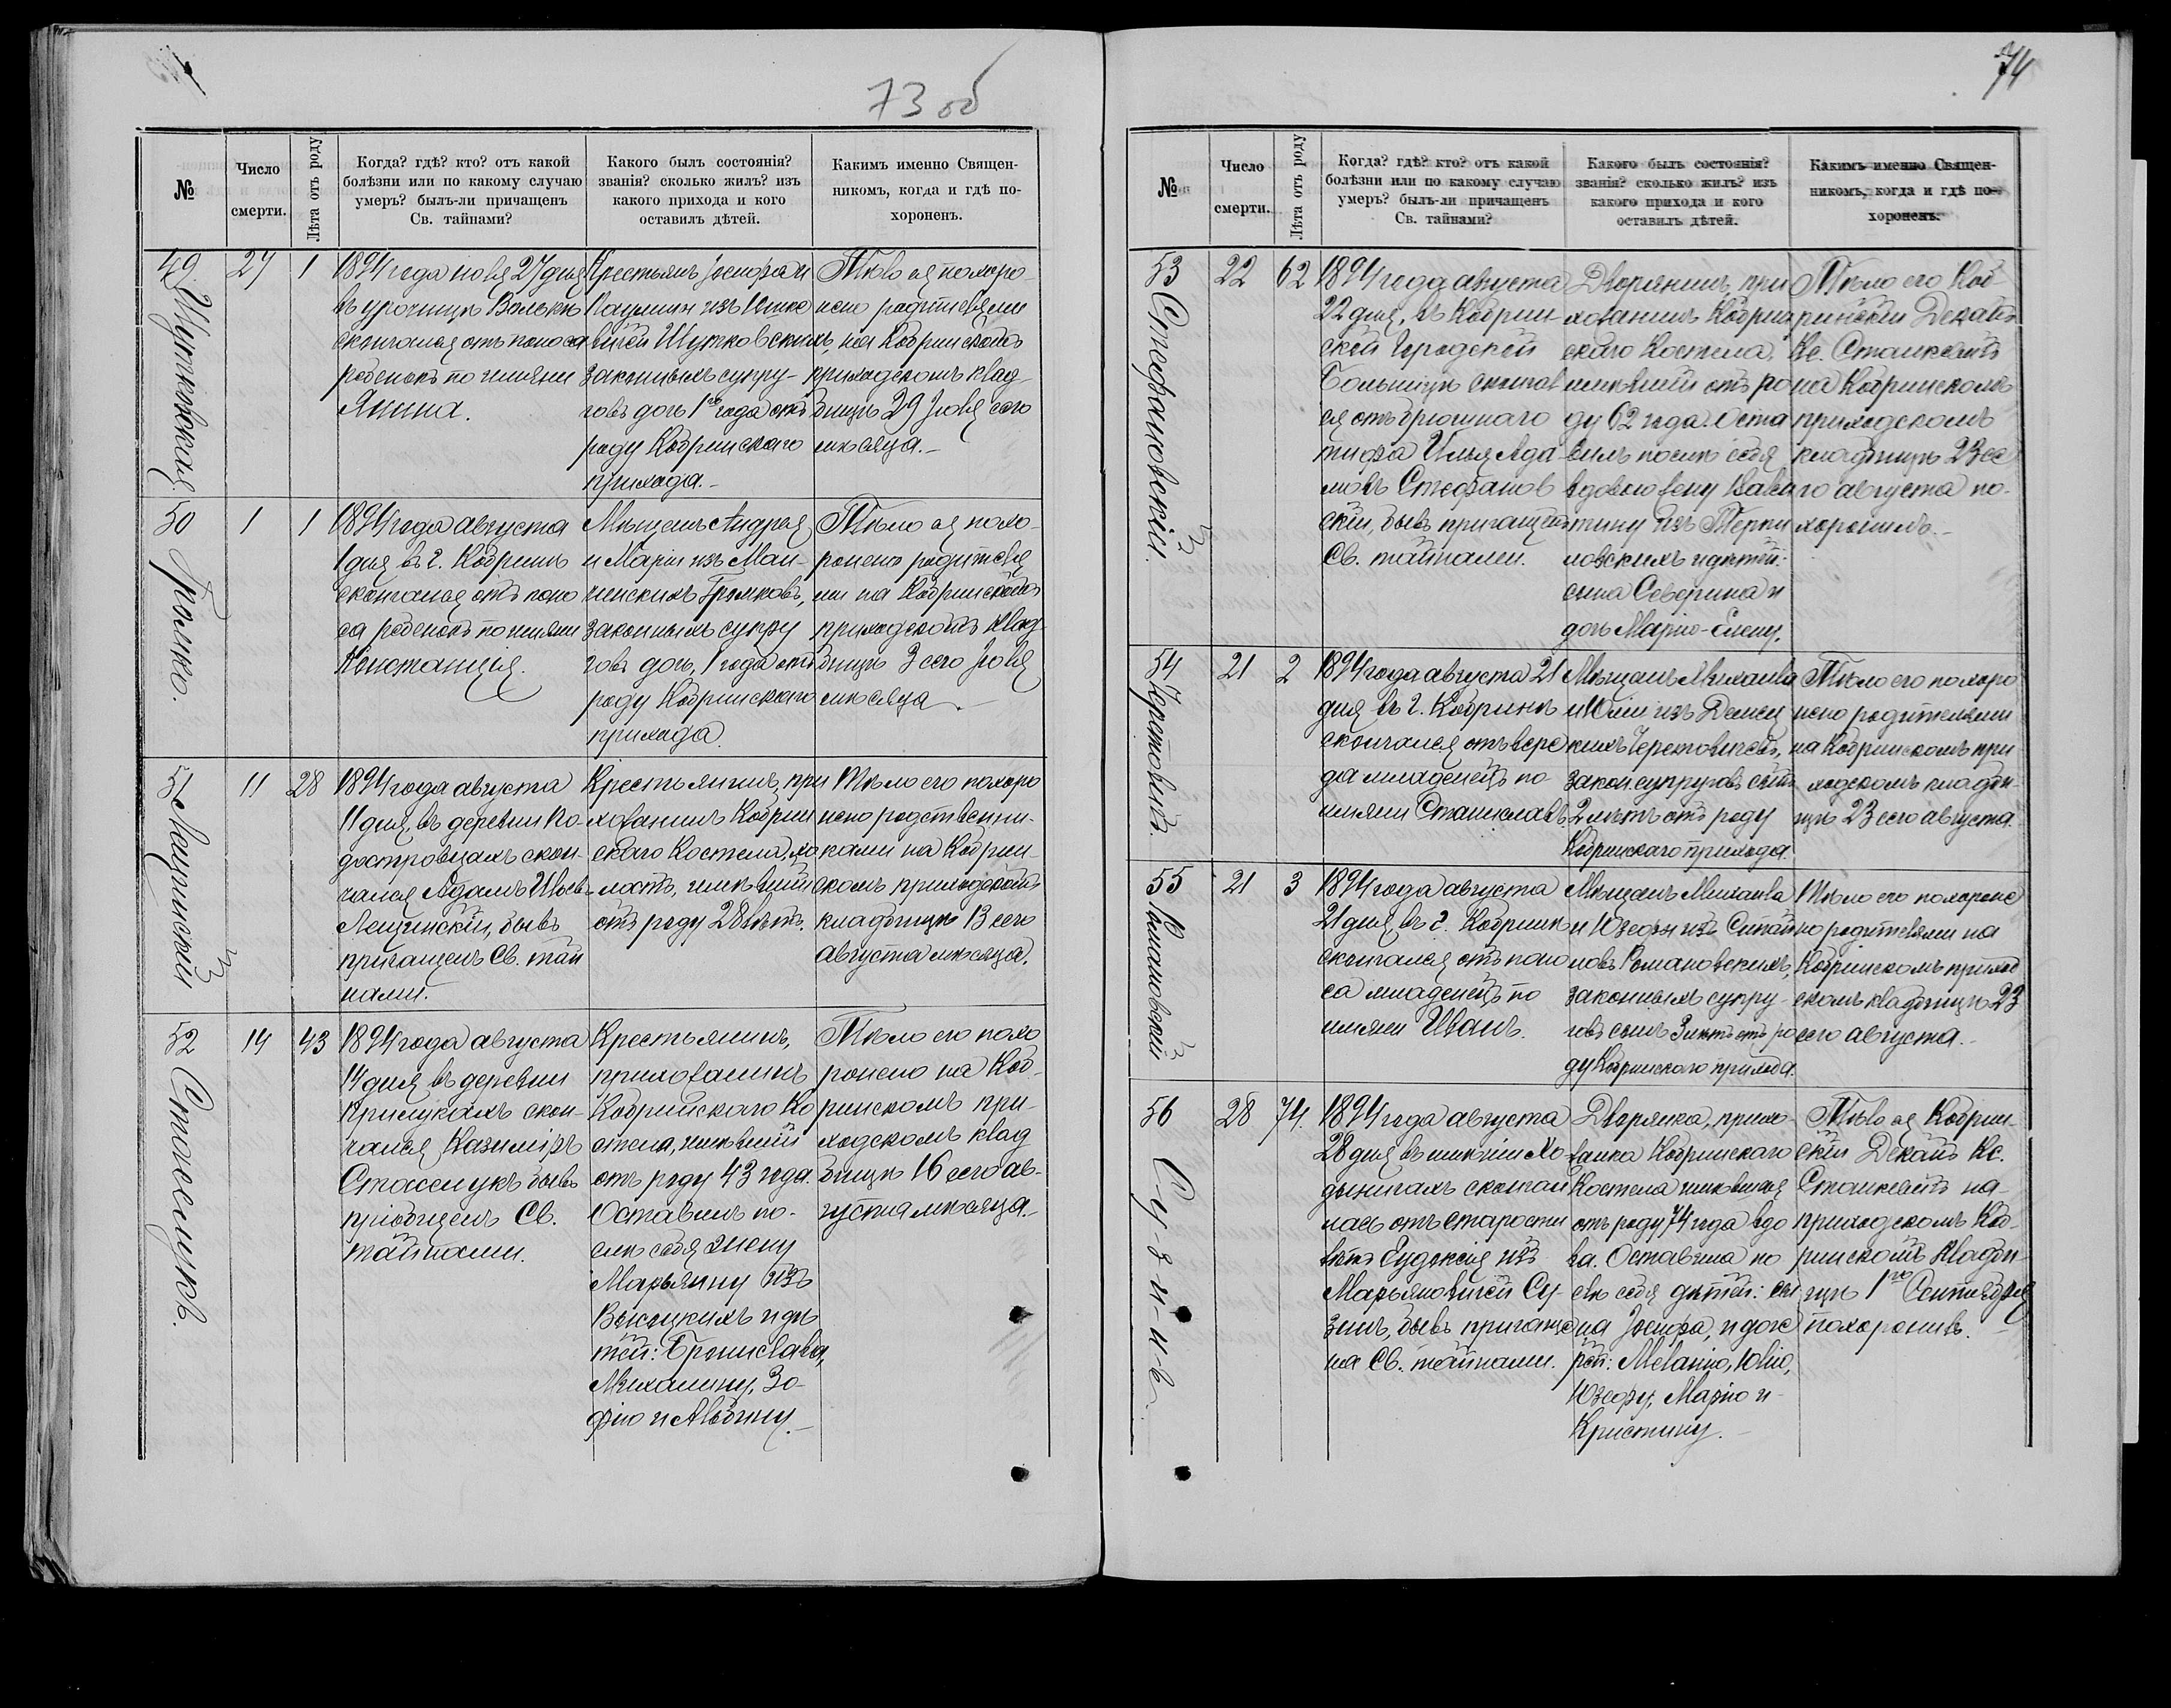 73 об
№
Число смерти.
Лѣта отъ роду
Когда? гдѣ? кто? отъ какой болѣзни или по какому случаю умеръ? былъ-ли причащенъ Св. тайнами?
Какого былъ состоянія? званія? сколько жилъ? изъ какого прихода и кого оставилъ дѣтей.
Какимъ именно Священникомъ, когда и гдѣ похороненъ.
49
Шутковская
27
1
1894 года іюля 27 дня
въ урочищѣ
скончался отъ поноса
ребенокъ по имени
Янина.
Крестьянъ Іосифа и
Паулины изъ
Шутковскихъ,
законныхъ супру-
говъ дочь 1го года отъ
роду Кобринскаго
прихода.-
Тѣло ея похоро-
нено родителями
на Кобринскомъ
приходскомъ клад-
бищѣ 29 Іюля сего
мѣсяца.-
50
Громко.
1
1
1894 года августа
1 дня въ г. Кобринѣ
скончался отъ поно
са ребенокъ по имени
Констанція.
Мѣщанъ Андрея
и Маріи изъ Ман-
Громковъ,
законныхъ супру
говъ дочь, 1 года отъ
роду Кобринскаго
прихода.
Тѣло ея похо-
ронено родителя
ми на Кобринскомъ
приходскомъ клад-
бищѣ 3 сего Іюля
мѣсяца.-
51
Лещинскій
11
28
1894 года августа
11 дня, въ деревни По-
достровцахъ скон-
чался Адамъ
Лещинскій, бывъ
причащенъ Св. тай
нами.
Крестьянинъ, при
хожанинъ Кобрин
скаго Костела, хо
лостъ, имѣвшій
отъ роду 28 лѣтъ.
Тѣло его похоро
нено родственни-
ками на Кобрин-
скомъ приходскомъ
кладбищѣ 13 сего
августа мѣсяца.
52
Стасюкъ.
14
43
1894 года августа
14 дня въ деревни
Прилукахъ скон-
чался Казиміръ
бывъ
пріобщенъ Св.
тайнами.
Крестьянинъ,
прихожанинъ
Кобринскаго Ко
стела, имѣвшій
отъ роду 43 года.
Оставилъ по-
слѣ себя жену
Марьянну изъ
Высоцкихъ и дѣ
тей: Бронислава,
Михалину, Зо-
фію и Альбину.-
Тѣло его похо
ронено на Коб-
ринскомъ при-
ходскомъ клад
бищѣ 16 сего ав-
густа мѣсяца.-
74
№
Число смерти.
Лѣта отъ роду
Когда? гдѣ? кто? отъ какой болѣзни или по какому случаю умеръ? былъ-ли причащенъ Св. тайнами?
Какого былъ состоянія? званія? сколько жилъ? изъ какого прихода и кого оставилъ дѣтей.
Какимъ именно Священникомъ, когда и гдѣ похороненъ.
53
Стефановскій.
22
62
1894 года августа
22 дня, въ Кобрин-
ской Городской
больницѣ сконч
ся отъ брюшнаго
тифа Илья Ада
мовъ Стефанов
скій, бывъ причащенъ
Св. тайнами.
Дворянинъ, при
хожанинъ Кобрин
скаго Костела,
имѣвшій отъ ро
ду 62 года. Оста
вилъ послѣ себя
вдовою жену
изъ
и дѣтей:
сына Северина и
дочь Марію-Елену.
Тѣло его Коб-
ринскій Деканъ
Кс. Станкевичъ
на Кобринскомъ
приходскомъ
кладбищѣ 23 се
го августа по-
хоронилъ.-
54
21
2
1894 года августа 21
дня въ г. Кобринѣ
скончался отъ вере
да младенецъ по
имени Станиславъ.
Мѣщанъ Михаила
и Юліи изъ
закон. супруговъ сынъ
2 лѣтъ отъ роду
Кобринскаго прихода.
Тѣло его похоро
нено родителями
на Кобринскомъ при
ходскомъ кладби-
щѣ 23 сего августа.
55
Романовскій
21
3
1894 года августа
21 дня, въ г. Кобринѣ
скончался отъ поно
са младенецъ по
имени Иванъ.
Мѣщанъ Михаила
и Юзефы изъ
Романовскихъ,
законныхъ супру-
говъ сынъ 3 лѣтъ отъ ро
ду Кобринскаго прихода.
Тѣло его похороне
но родителями на
Кобринскомъ приход
скомъ кладбищѣ 23
сего августа.-
56
С-у-з-и-н-ъ
28
74.
1894 года августа
28 дня, въ имѣніи Хо
дыничахъ сконча
лась отъ старости
лѣтъ Евдоксія изъ
Марьяновичей Су-
зинъ, бывъ причаще
на Св. тайнами.
Дворянка, прихо
жанка Кобринскаго
Костела имѣвшая
отъ роду 74 года вдо
ва. Оставила по
слѣ себя дѣтей: сы
на Іосифа, и доче
рей: Меланію, Юлію,
Юзефу, Марію и
Кристину.-
Тѣло ея Кобрин-
скій Деканъ Кс.
Станкевичъ на
приходскомъ Коб-
ринскомъ кладби-
щѣ 1го Сентября
похоронилъ.-